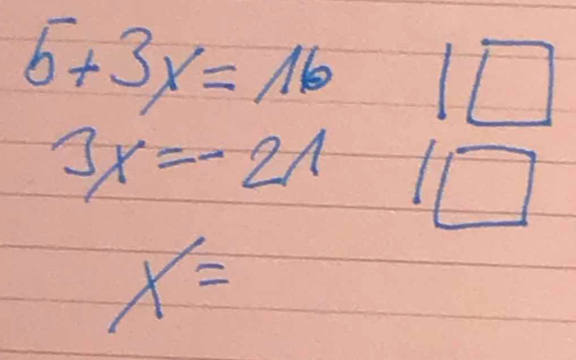 5+3x=16 | □
3x=-21 | □
x=